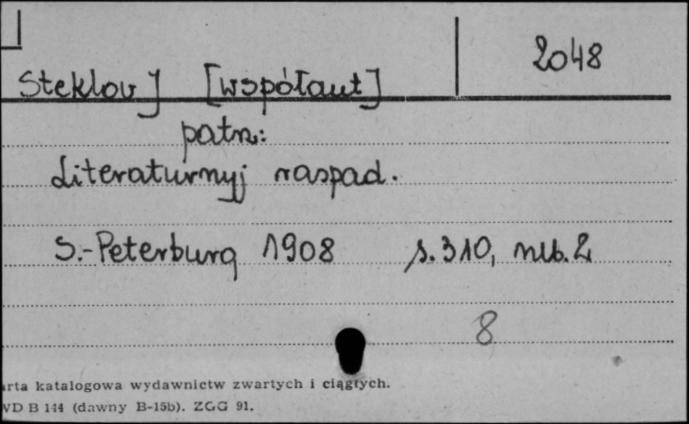 2048
Steklov J [współaut]
patrz:
Literaturnyj raspad.
S.-Peterburg 1908 s. 310, nlb. 2
8
arta katalogowa wydawnictw zwartych i ciągłych.
WD B 144 (dawny B-15b). ZGG 91.